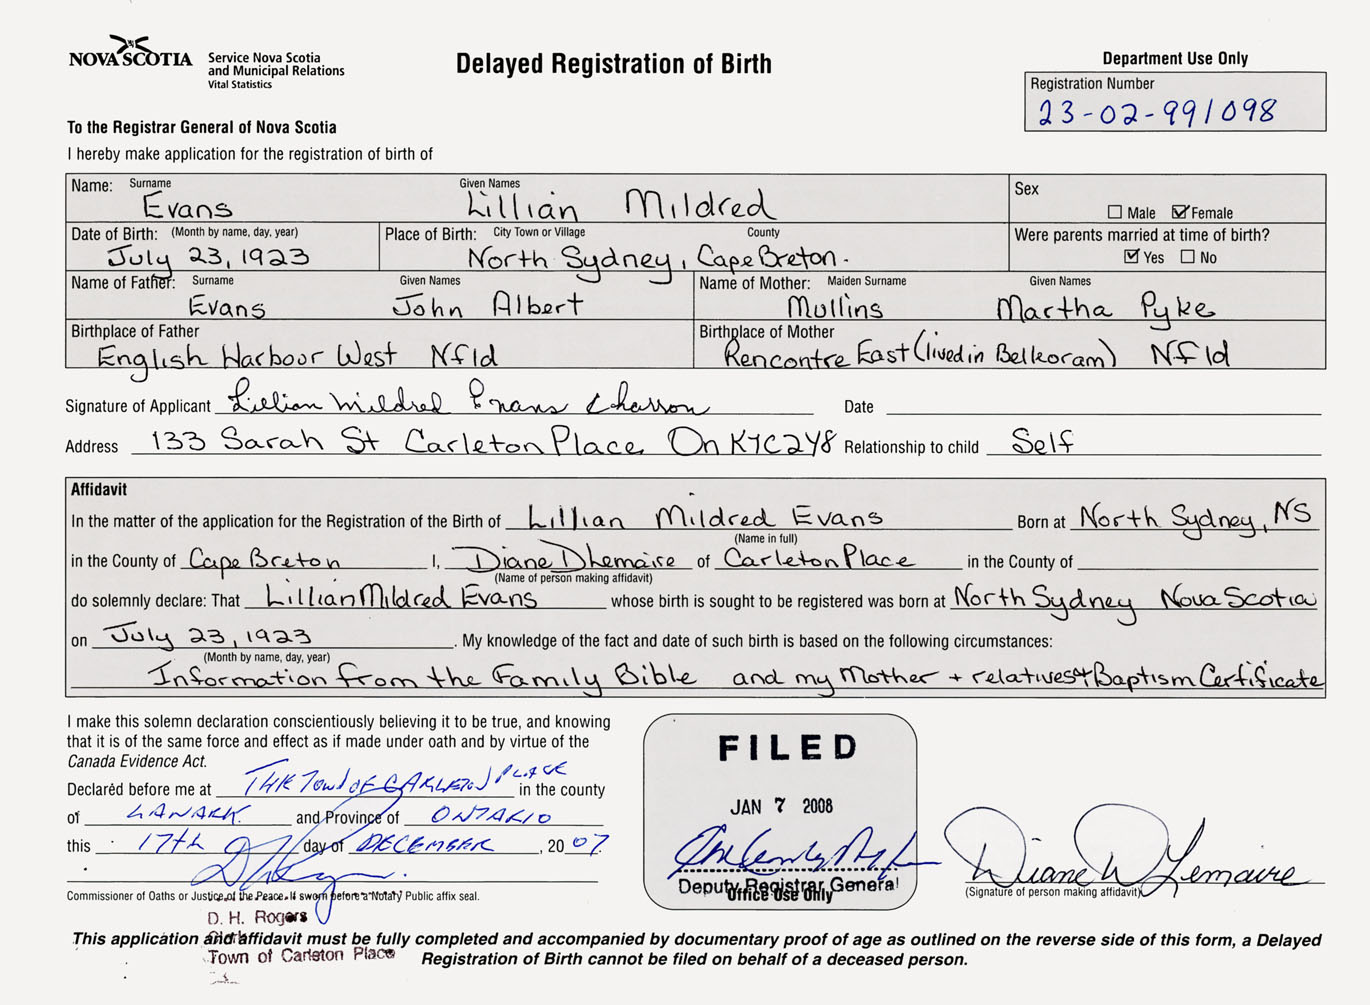 NOVA SCOTIA
Service Nova Scotia
and Municipal Relations
Vital Statistics
Delayed Registration of Birth
Department Use Only
Registration Number
23-02-991098
To the Registrar General of Nova Scotia
I hereby make application for the registration of birth of
Name: Surname Given Names Sex
Evans Lillian Mildred
Male Female
Date of Birth: (Month by name, day, year) Place of Birth: City Town or Village County Were parents married at time of birth?
July 23, 1923 North Sydney, Cape Breton. Yes No
Name of Father: Surname Given Names Name of Mother: Maiden Surname Given Names
Evans John Albert Mullins Martha Pyke
Birthplace of Father Birthplace of Mother
English Harbour West Nfld Rencontre East (lived in Belleoram) Nfld
Signature of Applicant Lillian Mildred Evans Chasson Date
Address 133 Sarah St Carleton Place On K7C2Y8 Relationship to child Self
Affidavit
In the matter of the application for the Registration of the Birth of Lillian Mildred Evans Born at North Sydney, NS
(Name in full)
in the County of Cape Breton I, Diane D Lemaire of Carleton Place in the County of
(Name of person making affidavit)
do solemnly declare: That Lillian Mildred Evans whose birth is sought to be registered was born at North Sydney Nova Scotia
on July 23, 1923. My knowledge of the fact and date of such birth is based on the following circumstances:
(Month by name, day, year)
Information from the Family Bible and my Mother + relatives + Baptism Certificate
I make this solemn declaration conscientiously believing it to be true, and knowing
that it is of the same force and effect as if made under oath and by virtue of the
Canada Evidence Act.
Declared before me at THE TOWN OF CARLETON PLACE in the county
of LANARK and Province of ONTARIO
this 17th day of DECEMBER, 2007.
Commissioner of Oaths or Justice of the Peace. If sworn before a "Notary" Public affix seal.
D. H. Rogers
Clerk
Town of Carleton Place
FILED
JAN 7 2008
Deputy Registrar General
Office Use Only
Diane D Lemaire
(Signature of person making affidavit)
This application and affidavit must be fully completed and accompanied by documentary proof of age as outlined on the reverse side of this form, a Delayed
Registration of Birth cannot be filed on behalf of a deceased person.